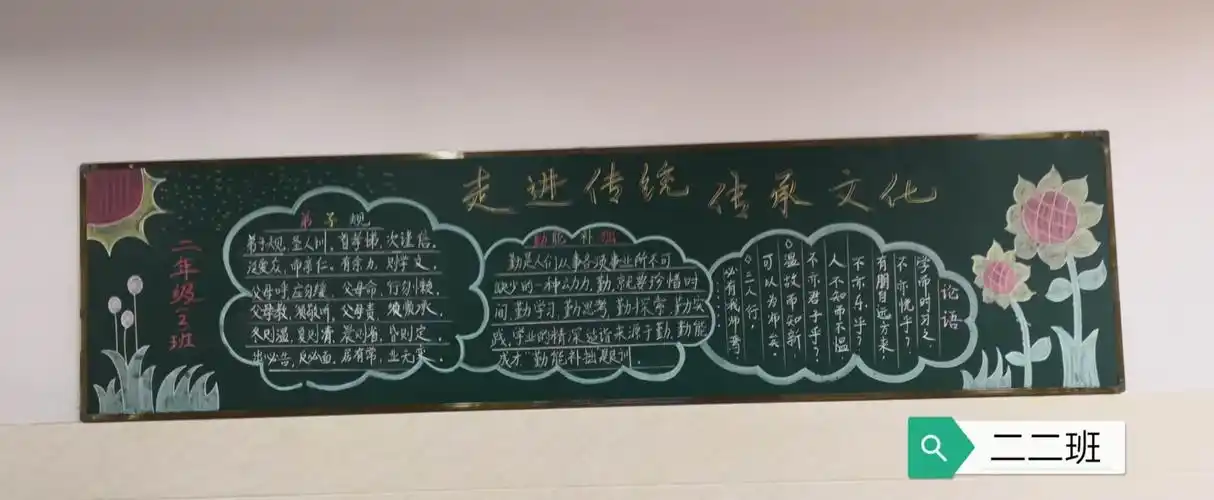 走进传统 传承文化
二年级(2)班
弟子规
弟子规，圣人训，首孝悌，次谨信，
泛爱众，而亲仁。有余力，则学文，
父母呼，应勿缓，父母命，行勿懒，
父母教，须敬听，父母责，须顺承，
冬则温，夏则凊，晨则省，昏则定，
出必告，反必面，居有常，业无变，
勤能补拙
勤是人们从事各项事业所不可
缺少的一种动力，勤就要珍惜时
间，勤学习，勤思考，勤探索，勤实
践，学业的精深造诣来源于勤，勤能
成才"勤能补拙是良训。
论语
学而时习之，
不亦悦乎？
有朋自远方来
不亦乐乎？
人不知而不愠
不亦君子乎？
◇温故而知新
可以为师矣。
◇三人行，
必有我师焉
二二班